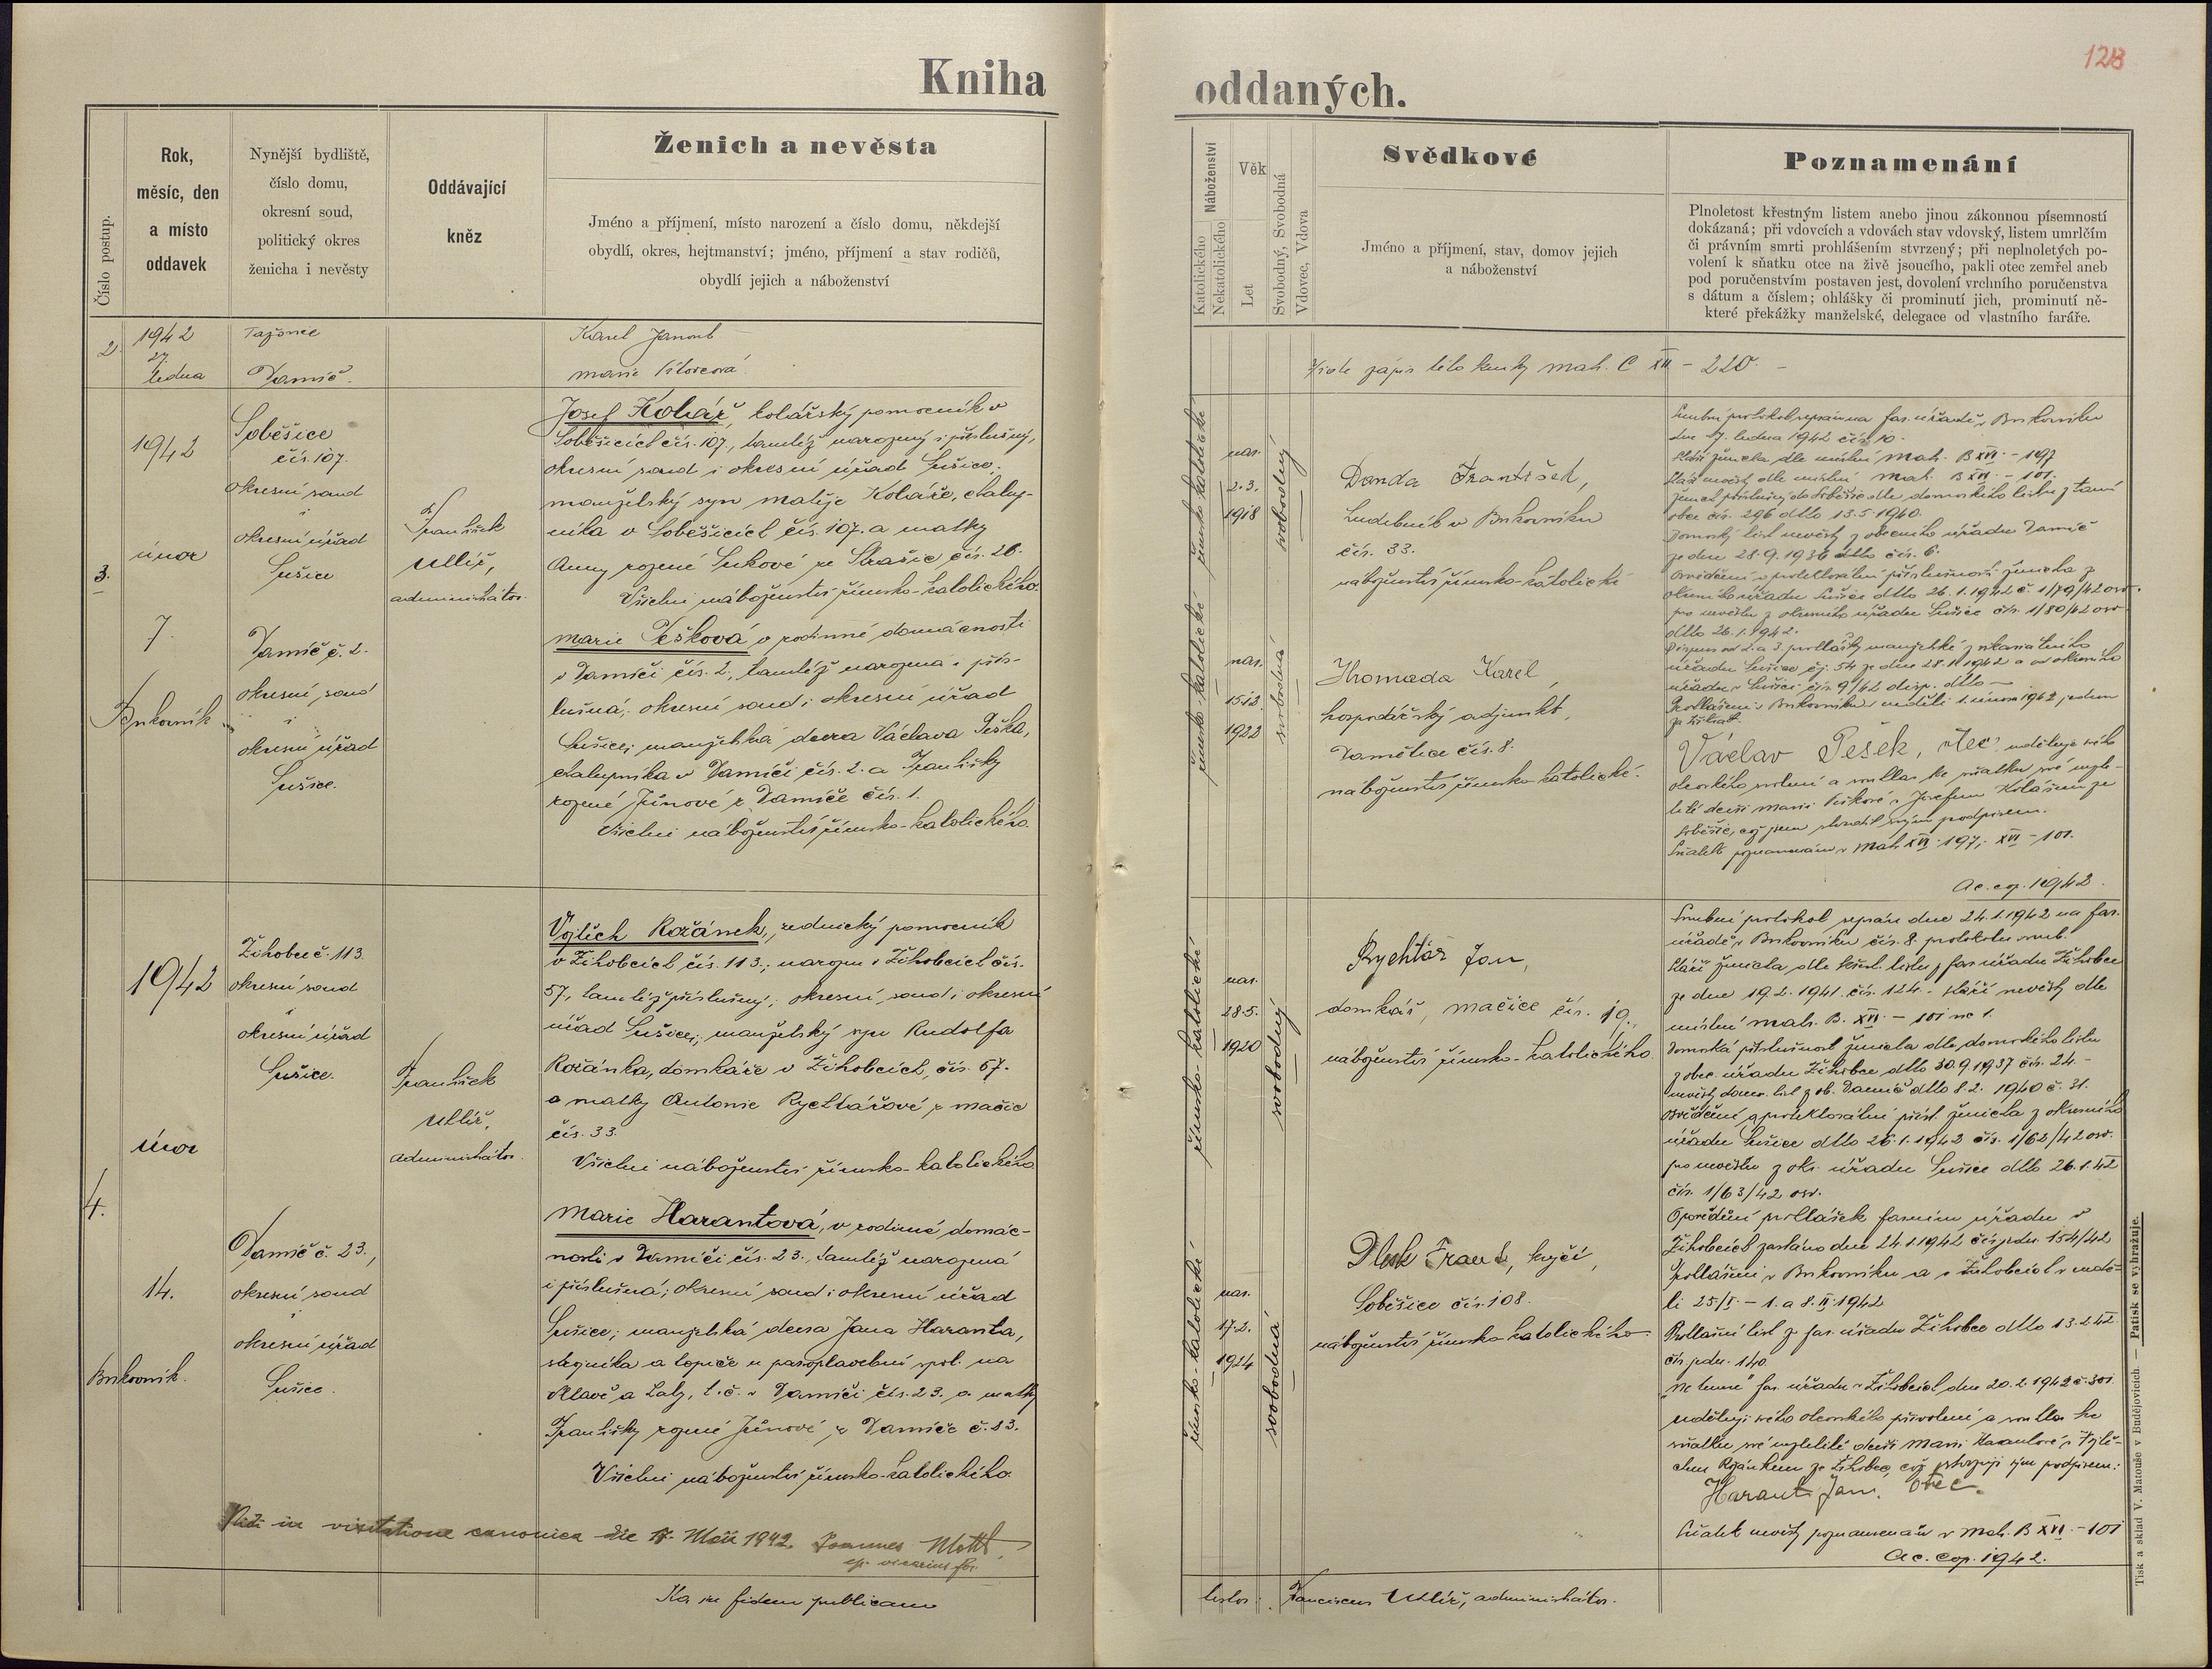 128
Kniha oddaných.
Číslo postup.
Rok,
měsíc, den
a místo
oddavek
Nynější bydliště,
číslo domu,
okresní soud,
politický okres
ženicha i nevěsty
Oddávající
kněz
Ženich a nevěsta
Jméno a příjmení, místo narození a číslo domu, někdejší
obydlí, okres, hejtmanství; jméno, příjmení a stav rodičů,
obydlí jejich a náboženství
Náboženství
Katolického
Nekatolického
Věk
Let
Svobodný, Svobodná
Vdovec, Vdova
Svědkové
Jméno a příjmení, stav, domov jejich
a náboženství
Poznamenání
Plnoletost křestným listem anebo jinou zákonnou písemností
dokázaná; při vdovcích a vdovách stav vdovský, listem umrlčím
či právním smrti prohlášením stvrzený; při neplnoletých po-
volení k sňatku otce na živě jsoucího, pakli otec zemřel aneb
pod poručenstvím postaven jest, dovolení vrchního poručenstva
s dátum a číslem; ohlášky či prominutí jich, prominutí ně-
které překážky manželské, delegace od vlastního faráře.
2.
1942
27.
ledna
Tažovice
Damíč.
Karel Janout
Marie
zápis této knihy mat. C XII - 220.
3.
1942
únor
7.
Bukovník
Soběšice
čís. 107.
okresní soud
i
okresní úřad
Sušice
Damíč č. 2.
okresní soud
i
okresní úřad
Sušice.
František
Uhlíř,
administrátor.
Josef Kolář, kolářský pomocník v
Soběšicích čís. 107., tamtéž narozený i příslušný,
okresní soud i okresní úřad Sušice;
manželský syn Matěje Koláře, chalup-
níka v Soběšicích čís. 107. a matky
Anny rozené Sukové ze Strašic čís. 26.
Všichni náboženství římsko-katolického.
Marie Pešková v rodinné domácnosti
v Damíči čís. 2., tamtéž narozená i přís-
lušná; okresní soud i okresní úřad
Sušice; manželská dcera Václava Peška,
chalupníka v Damíči čís. 2. a Františky
rozené Jůnové z Damíče čís. 1.
Všichni náboženství římsko-katolického.
římsko-katolické
nar.
2.3.
1918
svobodný
římsko-katolické
nar.
15.12.
1922
svobodná
Danda František,
hudebník v Bukovníku
čís. 33.
náboženství římsko-katolické
Hromada Karel,
hospodářský adjunkt,
Damětice čís. 8.
náboženství římsko-katolické.
Snubní protokol sepsán na far. úřadě v Bukovníku
dne 17. ledna 1942 čís. 10.
Stáří ženicha dle místní mat. B XVI - 197
Stáří nevěsty dle místní mat. B XVI - 101.
Ženich příslušný do Soběšic dle domovského listu z tamí
obce čís. 296 dtto 13.5.1940.
Domovský list nevěsty z obecního úřadu Damíč
ze dne 28.9.1936 dtto čís. 6.
Osvědčení o protektorátní příslušnosti ženicha z
okresního úřadu Sušice dtto 26.1.1942 č. 1/79/42 osv.
pro nevěstu z okresního úřadu Sušice čís. 1/80/42 osv
dtto 26.1.1942.
Dispens od 2. a 3. prohlášky manželské z vikariátního
úřadu Sušice čj. 54 ze dne 28.1.1942 a od okresního
úřadu v Sušici čís. 9/42 disp. dtto —
Prohlášeni v Bukovníku v neděli 1. února 1942 jednou
za třikrát.
Václav Pešek, otec uděluje svého
otcovského svolení a souhlas ke sňatku své nezle-
tilé dceři Marii Peškové s Josefem Kolářem ze
Soběšic, což jsem stvrdil svým podpisem.
Sňatek poznamenán v Mat. XVI - 197; XVI - 101.
Ac. cop. 1942.
4.
1942
únor
14.
Bukovník.
Žihobce č. 113.
okresní soud
i
okresní úřad
Sušice.
Damíč č. 23.,
okresní soud
i
okresní úřad
Sušice.
František
Uhlíř,
administrátor.
Vojtěch Rožánek, zednický pomocník
v Žihobcích čís. 113.; narozen v Žihobcích čís.
57., tamtéž příslušný; okresní soud i okresní
úřad Sušice; manželský syn Rudolfa
Rožánka, domkáře v Žihobcích, čís. 57.
a matky Antonie Rychtářové z Mačic
čís. 33.
Všichni náboženství římsko-katolického
Marie Harantová, v rodinné domác-
nosti v Damíči čís. 23., tamtéž narozená
i příslušná; okresní soud i okresní úřad
Sušice; manželská dcera Jana Haranta,
strojníka a topiče u paroplavební spol. na
Vltavě a Laby, t.č. v Damíči čís. 23. a matky
Františky rozené Jůnové z Damíče č. 23.
Všichni náboženství římsko-katolického.
římsko-katolické
nar.
28.5.
1920
svobodný
římsko-katolické
nar.
17.2.
1924
svobodná
Rychtář Jan,
domkář, Mačice čís. 19.,
náboženství římsko-katolického.
Frant., krejčí,
Soběšice čís. 108.
náboženství římsko-katolického.
Snubní protokol sepsán dne 24.1.1942 na far.
úřadě v Bukovníku čís. 8. protokolu snub.
Stáří ženicha dle křest. listu z far. úřadu Žihobce
ze dne 19.2.1941. čís. 124. - stáří nevěsty dle
místní mat. B. XVI. - 101 ne 1.
Domovská příslušnost ženicha dle domovského listu
z obec. úřadu Žihobce dtto 30.9.1937 čís. 24. -
nevěsty domov. list z ob. Damíč dtto 8.2. 1940 č. 31.
Osvědčení o protektorátní přísl. ženicha z okresního
úřadu Sušice dtto 26.1.1942 čís. 1/62/42 osv.
pro nevěstu z okr. úřadu Sušice dtto 26.1.42
čís. 1/63/42 osv.
Opovědění prohlášek farním úřadu v
Žihobcích zasláno dne 24.1.1942 čís. jedn. 154/42
Prohlášeni v Bukovníku a v Žihobcích v nedě-
li 25/I. - 1. a 8. II. 1942
Prohlašní list z far. úřadu Žihobce dtto 13.2.42
čís. jedn. 140.
"Ne temere" far. úřadu v Žihobcích dne 20.2.1942 č. 301
Uděluji svého otcovského přivolení a souhlas ke
sňatku své nezletilé dceři Marii Harantové s Vojtě-
chem Rožánkem ze Žihobec, což potvrzuji svým podpisem:
Harant Jan. otec.
Sňatek nevěsty poznamenán v Mat. B XVI. - 101
Ac. cop. 1942.
Vidi in visitatione canonica die 17. Maii 1942. Joannes
ep. vicarius for.
Ita in fidem publicam
testor: Franciscus Uhlíř, administrátor.
Tisk a sklad V. Matouše v Budějovicích. — Patisk se vyhražuje.